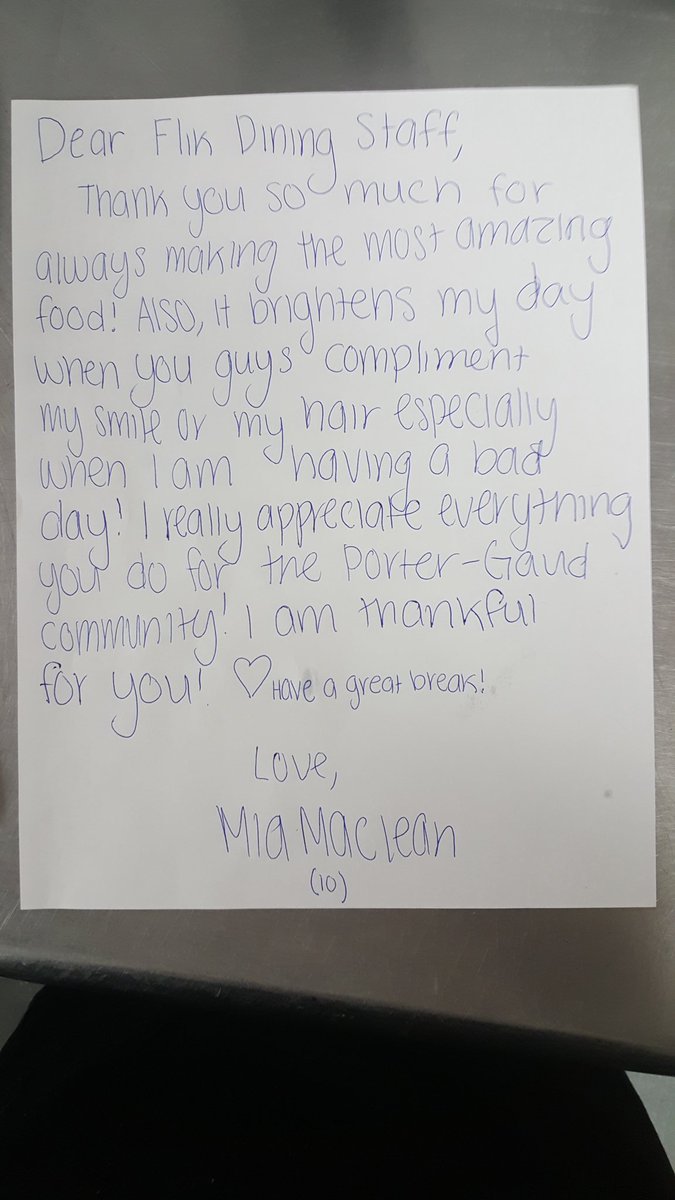 Dear Flik Dining Staff,
Thank you so much for
always making the most amazing
food! Also, it brightens my day
when you guys compliment
my smile or my hair especially
when I am having a bad
day! I really appreciate everything
you do for the Porter-Gaud
community! I am thankful
for you! ♡ Have a great break!
Love,
Mia Maclean
(10)